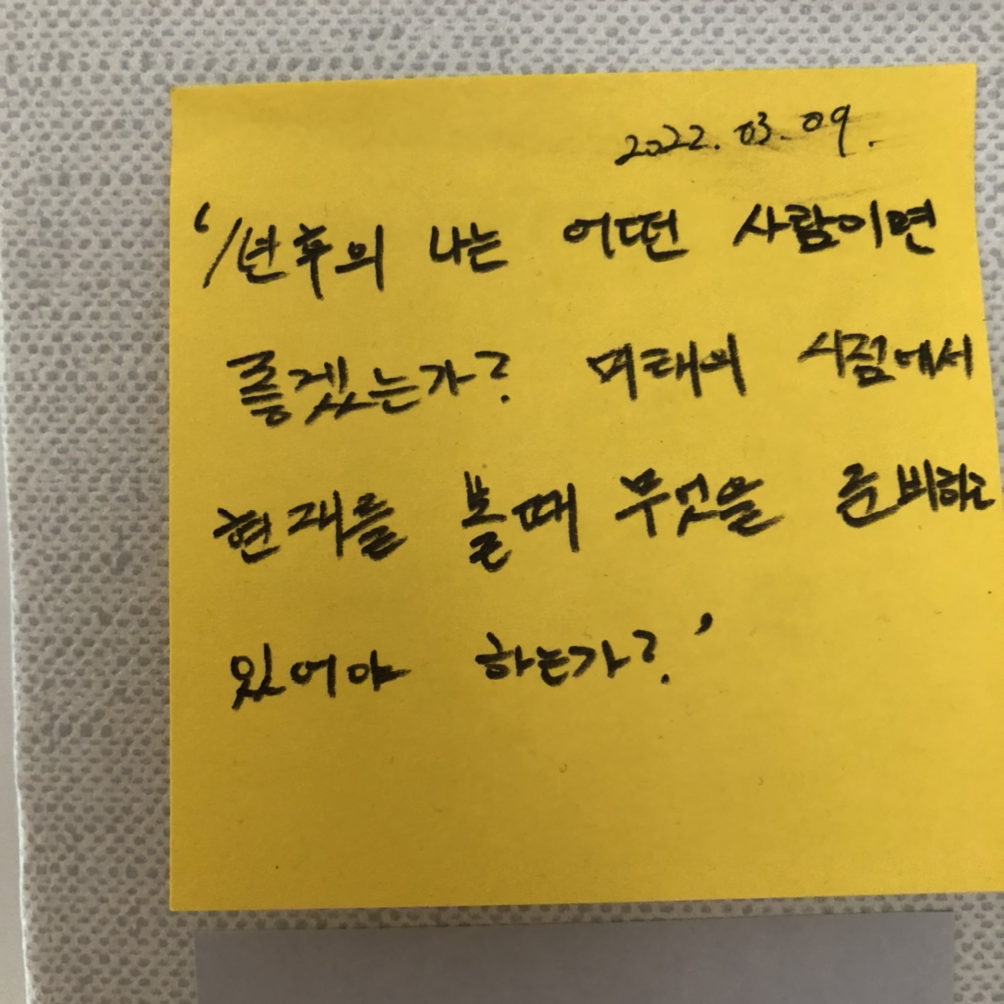 2022. 03. 09.
'1년후의 나는 어떤 사람이면
좋겠는가? 미래의 시점에서
현재를 볼때 무엇을 준비하고
있어야 하는가?'